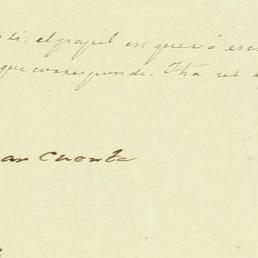 si: el papel en que vá esc
que corresponde. Fha ut
ar Cuenta